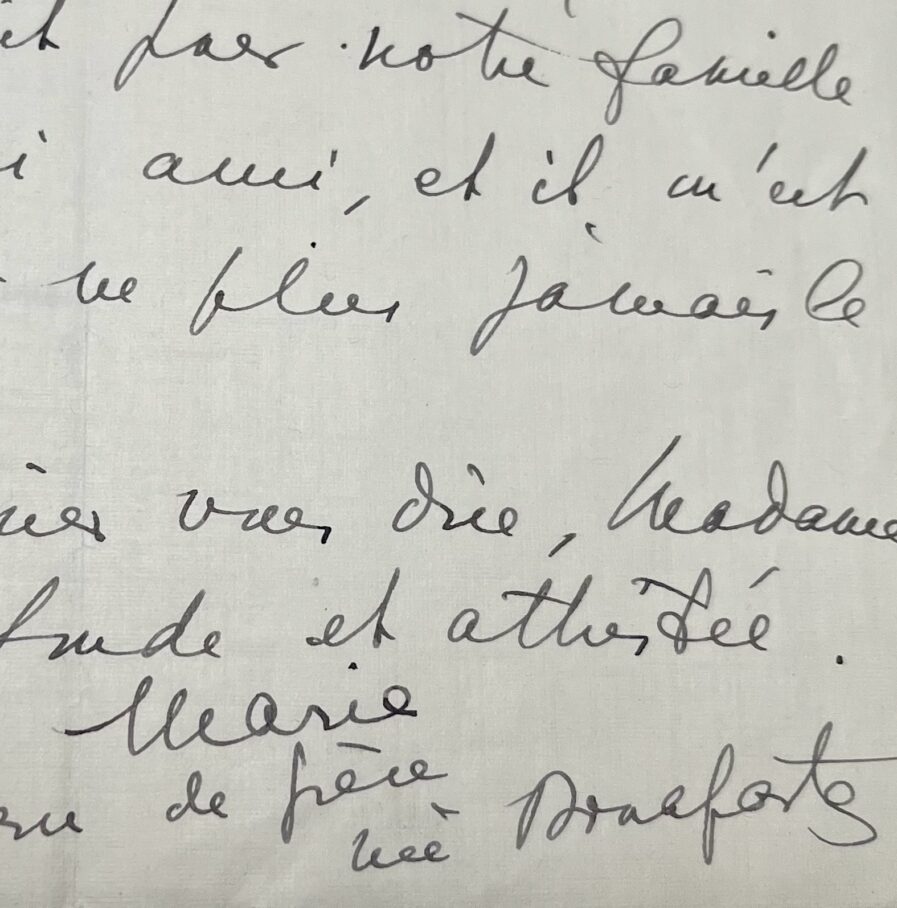 par notre famille
ami, et il m'est
ne plus jamais le
vous dire, Madame
et attristée.
Marie
de Grèce
née Bonaparte